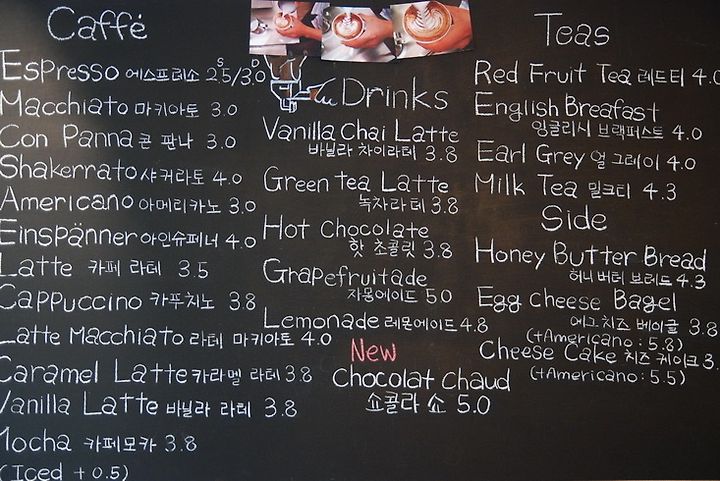 Caffé
Espresso 에스프레소 S 2.5/3.0 D
Macchiato 마키아토 3.0
Con Panna 콘 판나 3.0
Shakerrato 샤커라토 4.0
Americano 아메리카노 3.0
Einspänner 아인슈페너 4.0
Latte 카페 라떼 3.5
Cappuccino 카푸치노 3.8
Latte Macchiato 라떼 마키아토 4.0
Caramel Latte 카라멜 라떼 3.8
Vanilla Latte 바닐라 라떼 3.8
Mocha 카페모카 3.8
(Iced + 0.5)
Drinks
Vanilla Chai Latte
바닐라 차이라떼 3.8
Green tea Latte
녹차라떼 3.8
Hot Chocolate
핫 초콜릿 3.8
Grapefruitade
자몽에이드 5.0
Lemonade 레몬에이드 4.8
New
Chocolat Chaud
쇼콜라 쇼 5.0
Teas
Red Fruit Tea 레드티 4.0
English Breafast
잉글리시 브랙퍼스트 4.0
Earl Grey 얼 그레이 4.0
Milk Tea 밀크티 4.3
Side
Honey Butter Bread
허니 버터 브레드 4.3
Egg Cheese Bagel
에그 치즈 베이글 3.8
(+Americano : 5.8)
Cheese Cake 치즈 케이크 3.
(+Americano : 5.5)